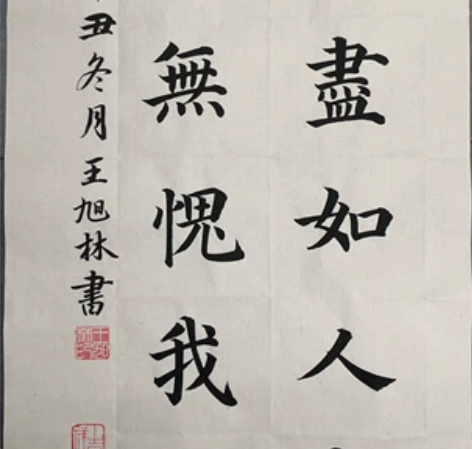 盡如人
無愧我
丑冬月王旭林書